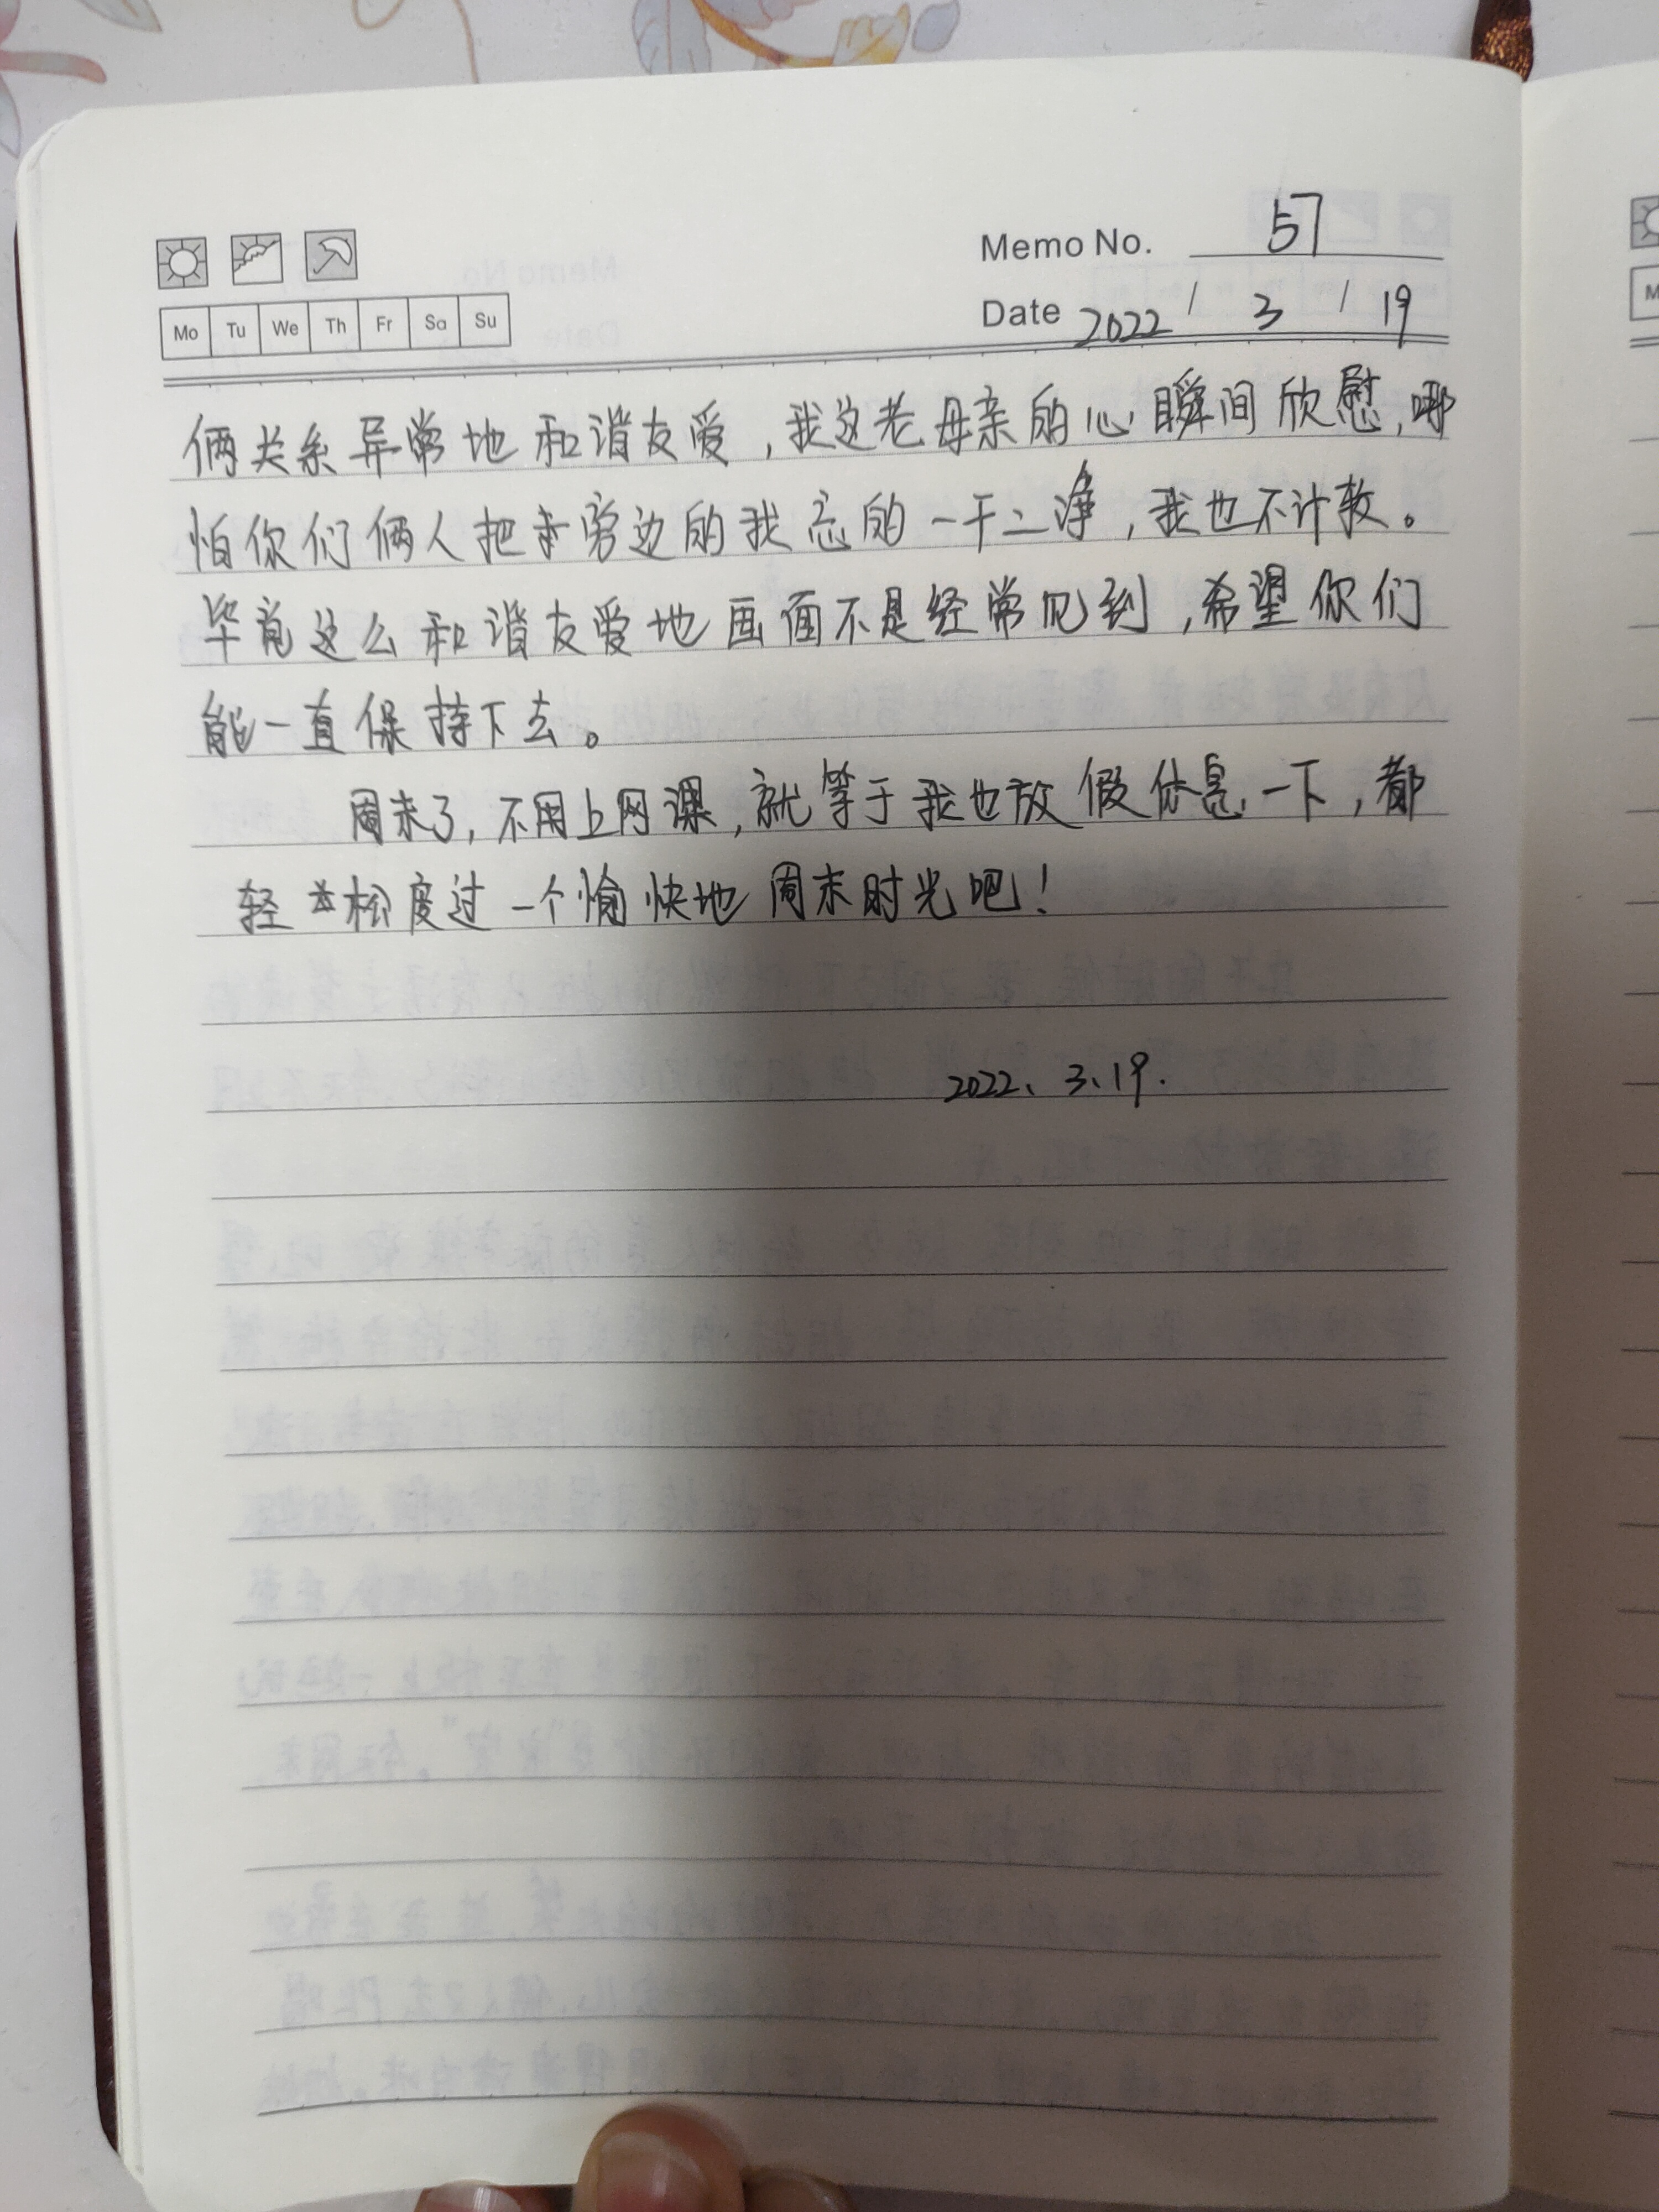 Memo No. 57
Mo Tu We Th Fr Sa Su
Date 2022 / 3 / 19
俩关系异常地和谐友爱，我这老母亲的心瞬间欣慰，哪
怕你们俩人把旁边的我忘的一干二净，我也不计较。
毕竟这么和谐友爱地画面不是经常见到，希望你们
能一直保持下去。
周末了，不用上网课，就等于我也放假休息一下，都
轻松度过一个愉快地周末时光吧！
2022、3、19.